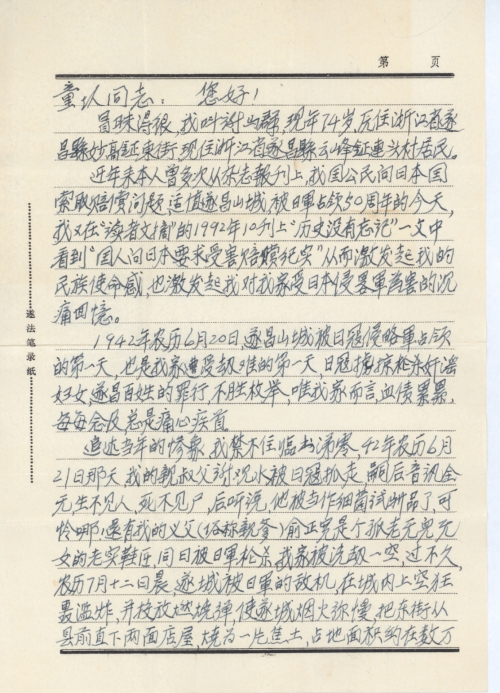 第 页
童 同志： 您好！
冒昧得很，我叫 山群，现年74岁，原住浙江省遂
昌縣妙高鎮東街，现住浙江省遂昌縣云峰鎮連头村居民。
近年来本人曾多次从杂志報刊上，我国公民向日本国
索取赔偿问题，适值遂昌山城被日軍占领50周年的今天，
我又在“读者文摘”的1992年10刊上“历史没有忘记”一文中
看到“国人向日本要求受害赔赎纪实”从而激发起我的
民族使命感，也激发起我对我家受日本侵畧軍 害的沉
痛回憶。
1942年农历6月20日，遂昌山城被日冦侵略軍占领
的第一天，也是我家遭受劫难的第一天，日冦掳掠枪杀奸淫
妇女，遂昌百姓的罪行，不胜枚举，唯我家而言，血债累累，
每每念及总是痛心疾首。
追述当年的惨象，我禁不住临书涕零，42年农历6月
21日那天，我的親叔父 沉水被日冦抓走，嗣后音讯全
无生不见人，死不见尸，后听说，他被当作细菌试制品了，可
怜哪！还有我的义父（俗称親爹）俞正 是个孤老无兒无
女的老实鞋匠，同日被日軍枪杀，我家被洗劫一空，过不久，
农历7月十二日晨，遂城被日軍的敌机，在城内上空狂
轰滥炸，并投放燃烧弹，使遂城烟火弥慢，把东街从
县前直下两面店屋，燒为一片焦土，占地面积约在数万
遂法笔录纸